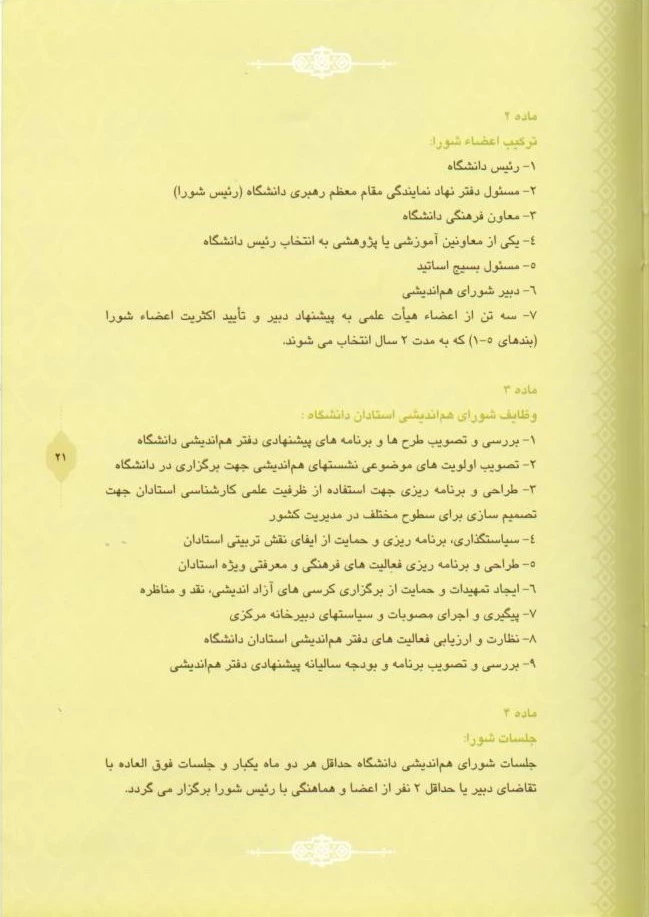 ماده ۲
ترکیب اعضاء شورا:
۱- رئیس دانشگاه
۲- مسئول دفتر نهاد نمایندگی مقام معظم رهبری دانشگاه (رئیس شورا)
۳- معاون فرهنگی دانشگاه
٤- یکی از معاونین آموزشی یا پژوهشی به انتخاب رئیس دانشگاه
٥- مسئول بسیج اساتید
٦- دبیر شورای هم‌اندیشی
۷- سه تن از اعضاء هیأت علمی به پیشنهاد دبیر و تأیید اکثریت اعضاء شورا
(بندهای ٥-۱) که به مدت ۲ سال انتخاب می شوند.
ماده ۳
وظایف شورای هم‌اندیشی استادان دانشگاه :
۱- بررسی و تصویب طرح ها و برنامه های پیشنهادی دفتر هم‌اندیشی دانشگاه
۲- تصویب اولویت های موضوعی نشستهای هم‌اندیشی جهت برگزاری در دانشگاه
۳- طراحی و برنامه ریزی جهت استفاده از ظرفیت علمی کارشناسی استادان جهت
تصمیم سازی برای سطوح مختلف در مدیریت کشور
٤- سیاستگذاری، برنامه ریزی و حمایت از ایفای نقش تربیتی استادان
٥- طراحی و برنامه ریزی فعالیت های فرهنگی و معرفتی ویژه استادان
٦- ایجاد تمهیدات و حمایت از برگزاری کرسی های آزاد اندیشی، نقد و مناظره
۷- پیگیری و اجرای مصوبات و سیاستهای دبیرخانه مرکزی
۸- نظارت و ارزیابی فعالیت های دفتر هم‌اندیشی استادان دانشگاه
۹- بررسی و تصویب برنامه و بودجه سالیانه پیشنهادی دفتر هم‌اندیشی
ماده ۴
جلسات شورا:
جلسات شورای هم‌اندیشی دانشگاه حداقل هر دو ماه یکبار و جلسات فوق العاده با
تقاضای دبیر یا حداقل ۲ نفر از اعضا و هماهنگی با رئیس شورا برگزار می گردد.
۲۱